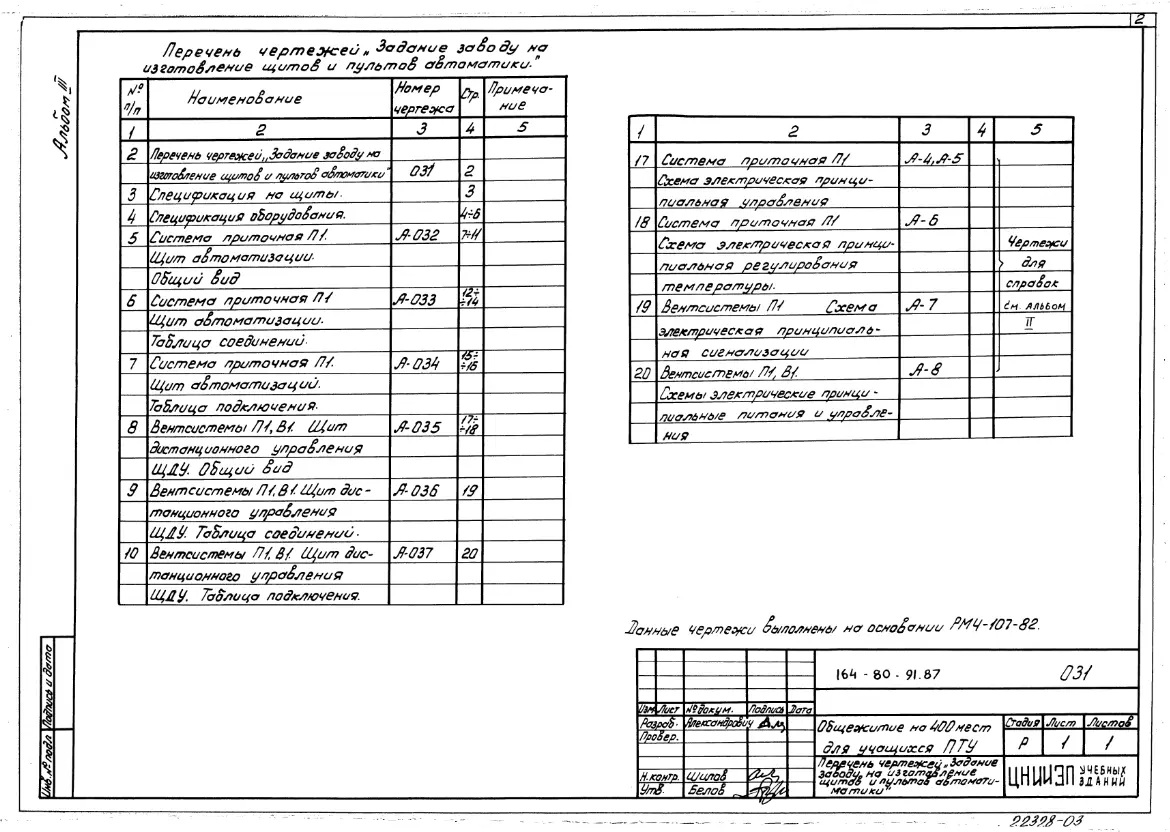 2
Альбом III
Перечень чертежей „Задание заводу на
изготовление щитов и пультов автоматики."
№ п/п Наименование Номер чертежа Стр. Примеча-ние
1 2 3 4 5
2 Перечень чертежей „Задание заводу на
изготовление щитов и пультов автоматики" 031 2
3 Спецификация на щиты. 3
4 Спецификация оборудования. 4÷6
5 Система приточная П1. А-032 7÷11
Щит автоматизации.
Общий вид
6 Система приточная П1 А-033 12÷÷14
Щит автоматизации.
Таблица соединений.
7 Система приточная П1. А-034 15÷÷16
Щит автоматизаций.
Таблица подключения.
8 Вентсистемы П1, В1. Щит А-035 17÷÷18
дистанционного управления
ЩДУ. Общий вид
9 Вентсистемы П1, В1. Щит дис- А-036 19
танционного управления
ЩДУ. Таблица соединений.
10 Вентсистемы П1, В1. Щит дис- А-037 20
танционного управления
ЩДУ. Таблица подключения.
1 2 3 4 5
17 Система приточная П1 А-4, А-5
Схема электрическая принци-
пиальная управления
18 Система приточная П1 А-6
Схема электрическая принци-
пиальная регулирования
температуры.
19 Вентсистемы П1 Схема А-7
электрическая принципиаль-
ная сигнализации
20 Вентсистемы П1, В1. А-8
Схемы электрические принци-
пиальные питания и управле-
ния
Чертежи
для
справок
см. АЛЬБОМ
II
Данные чертежи выполнены на основании РМ4-107-82.
164-80-91.87 031
Изм. Лист № докум. Подпись Дата
Разраб. Александрович
Провер.
Н.контр. Шилов
Утв. Белов
Общежитие на 400 мест
для учащихся ПТУ
Стадия Лист Листов
Р 1 1
Перечень чертежей „Задание
заводу на изготовление
щитов и пультов автомати-
матики"
ЦНИИЭП УЧЕБНЫХ ЗДАНИЙ
Инв. № подл. Подпись и дата
22328-03